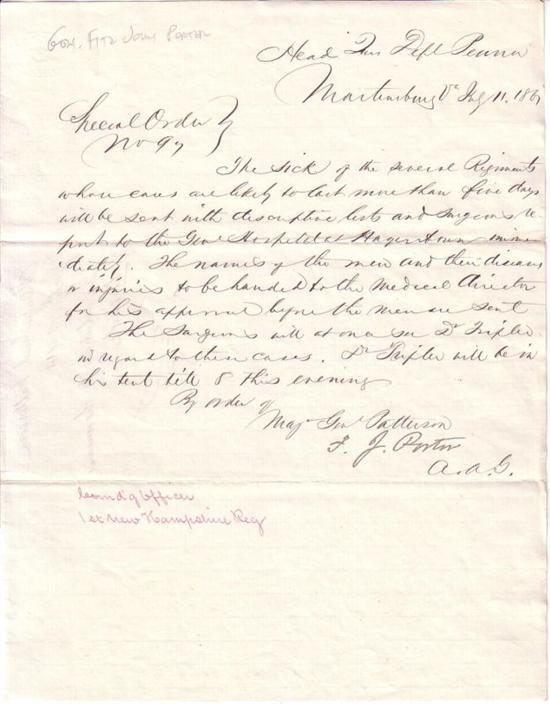 Gen. Fitz John Porter
Head Qrs Dept Penna
Martinsburg Va July 11. 1861
Special Order
No 97
The sick of the several Regiments
whose cases are likely to last more than five days
will be sent with descriptive lists and surgeons re
port to the Genl Hospital at Hagerstown imme
diately. The names of the men and their diseases
or injuries to be handed to the Medical Director
for his approval before the men are sent
The Surgeons will at once see Dr Tripler
in regard to these cases. Dr Tripler will be in
his tent till 8 this evening
By order of
Maj Genl Patterson
F. J. Porter
A.A.G.
Comdg Officer
1st New Hampshire Reg